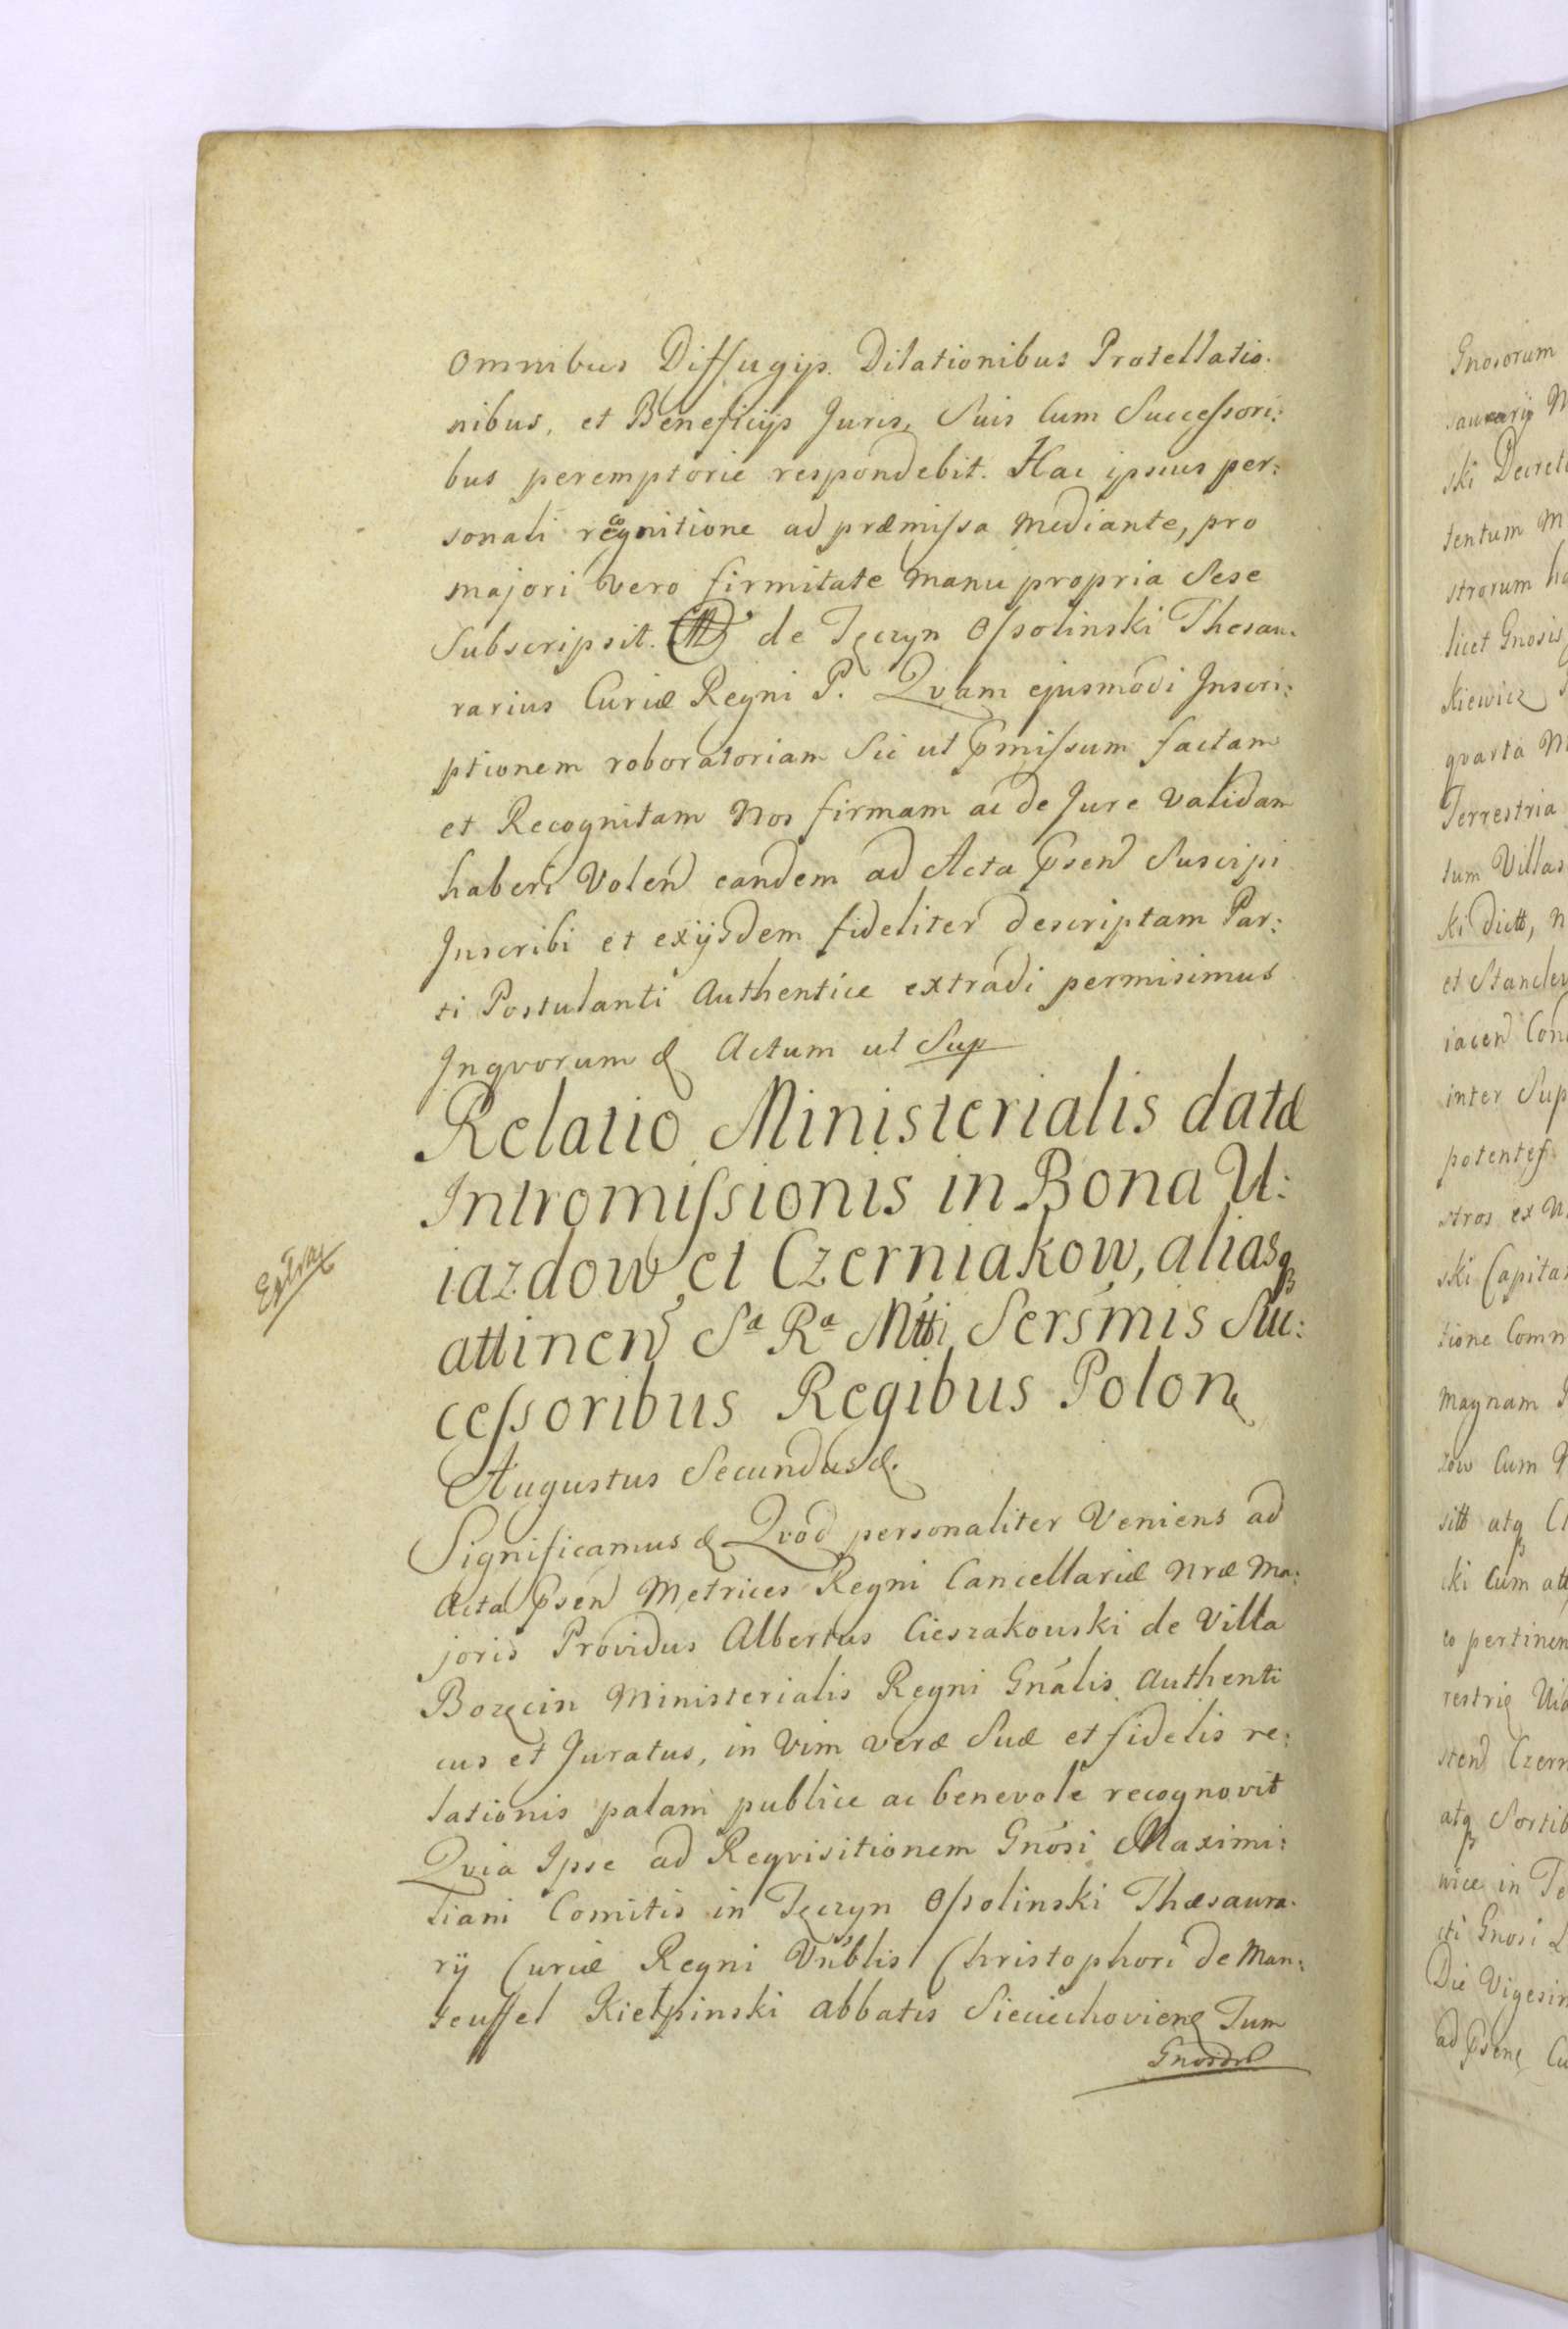 omnibus Diffugijs Dilationibus Protellatio.
nibus, et Beneficijs Juris, Suis cum Successori:
bus peremptorie respondebit. Hac ipsius per:
sonali recognitione ad præmissa mediante, pro
majori vero firmitate manu propria Sese
Subscripsit. de Tęczyn Ossolinski Thesau.
rarius Curiæ Regni P. Qvam ejusmodi Inscri:
ptionem roboratoriam Sic ut pmissum factam
et Recognitam Nos firmam ac de Jure validam
haberi Volen eandem ad Acta psen Suscipi
Inscribi et exijsdem fideliter descriptam Par:
ti Postulanti Authentice extradi permisimus
Inqvorum & Actum ut Sup
Relatio Ministerialis datæ
Intromissionis in Bona U:
iazdow et Czerniakow, aliasq
attinen Sa Ra Mtti Sersmis Suc:
cessoribus Regibus Polon
Augustus Secundus &.
Significamus & Qvod personaliter Veniens ad
Acta psen Metrices Regni Cancellariæ nræ Ma:
joris Providus Albertus Cieszakouski de Villa
Bozęcin Ministerialis Regni Gnalis Authenti
cus et Juratus, in Vim veræ Suæ et fidelis re:
lationis palam publice ac benevole recognovit
Qvia Ipse ad Reqvisitionem Gnosi Maximi:
liani Comitis in Tęczyn Ossolinski Thæsaura.
rij Curiæ Regni Vnblis Christophori de Man:
teuffel Kiełpinski abbatis Sieciechovien Tum
Extrax
Gnosorum
ski Decret
tentum M
strorum
licet Gnosis
kiewicz
qvarta
Terrestria
tum Villas
ki dictt,
et
iacen Con
inter Sup
potentes
stros ex
ski Capita
tione Comn
magnam
zow Cum
sitt atq
cki Cum att
eo pertinen
restrie
sten Czern
atq Sortib
wice in Te
cti Gnosi
Die Vigesim
ad psen Cu